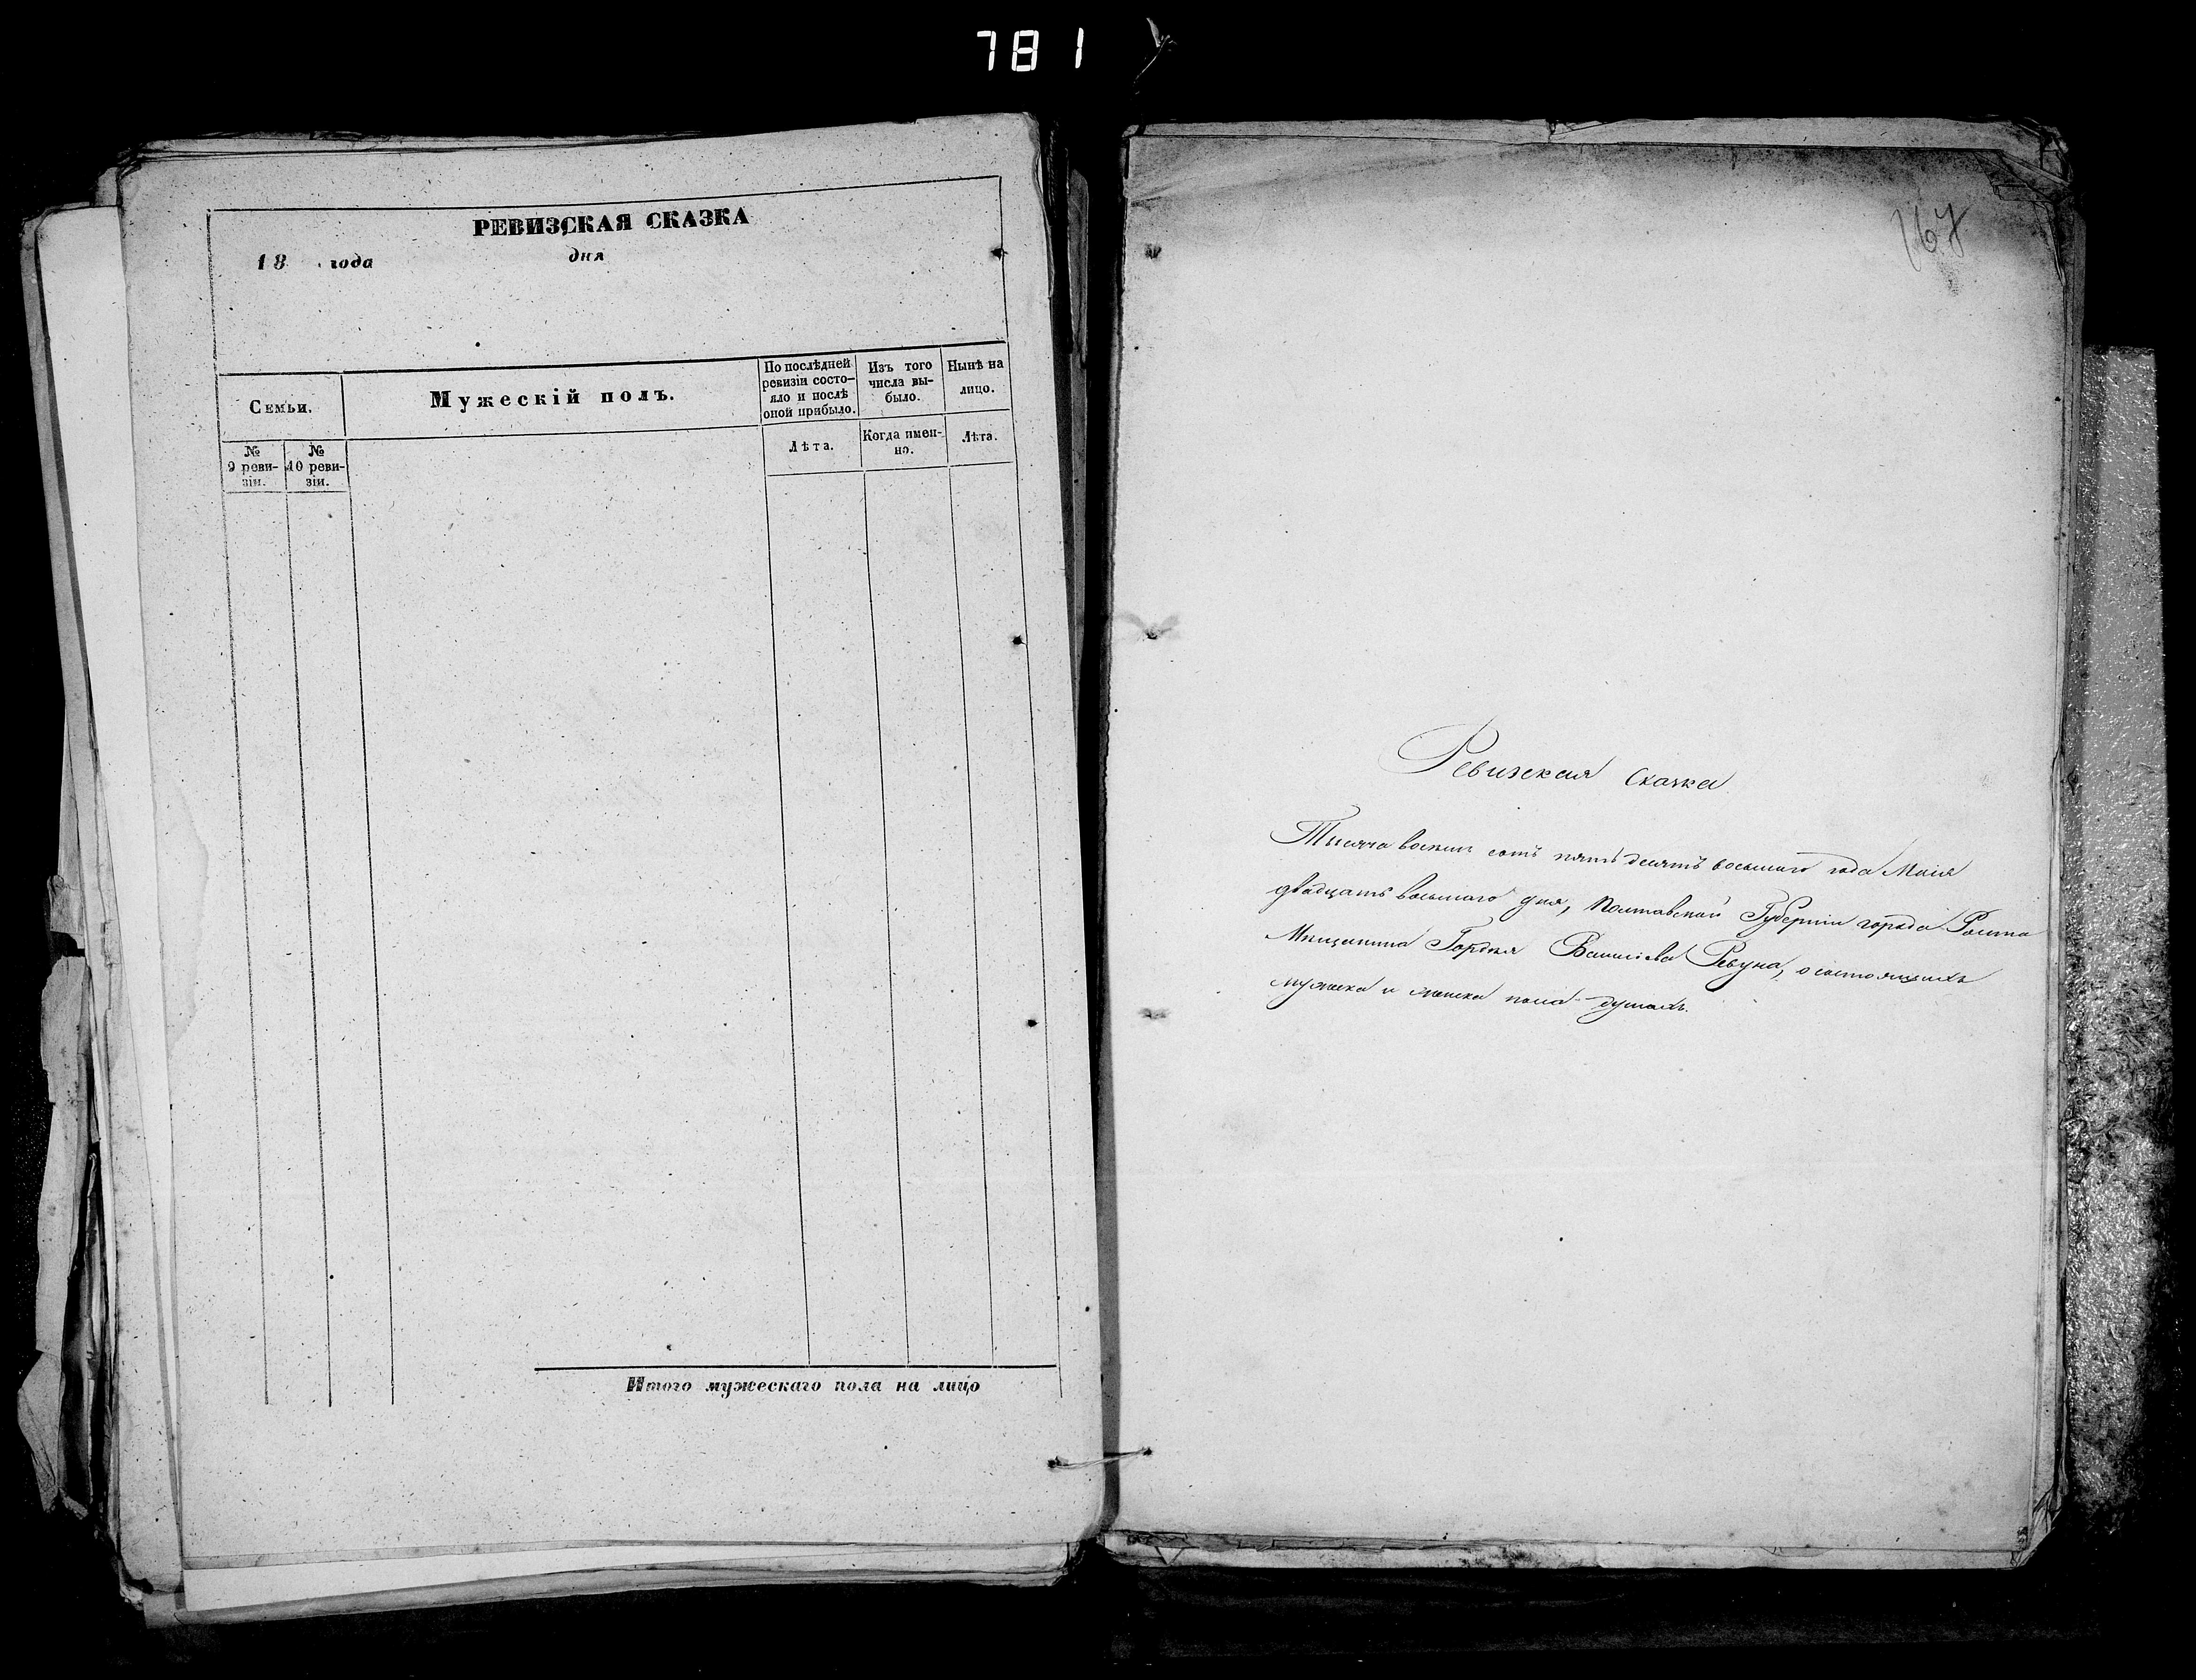 781
РЕВИЗСКАЯ СКАЗКА
18 года дня
Семьи.
Мужескій полъ.
По послѣдней ревизіи состо-
яло и послѣ оной прибыло.
Изъ того числа вы-
было.
Нынѣ на лицо.
№ 9 реви-
зіи.
№ 10 реви-
зіи.
Лѣта.
Когда имен-
но.
Лѣта.
Итого мужескаго пола на лицо
167
Ревизская Сказка
Тысяча восемь сотъ пять десятъ восьмаго года Маія
двадцать восьмаго дня, Полтавской Губерніи города Ромна
Мещанина Гордея Васильева Ревуна, о состоящихъ
мужеска и женска пола душахъ.